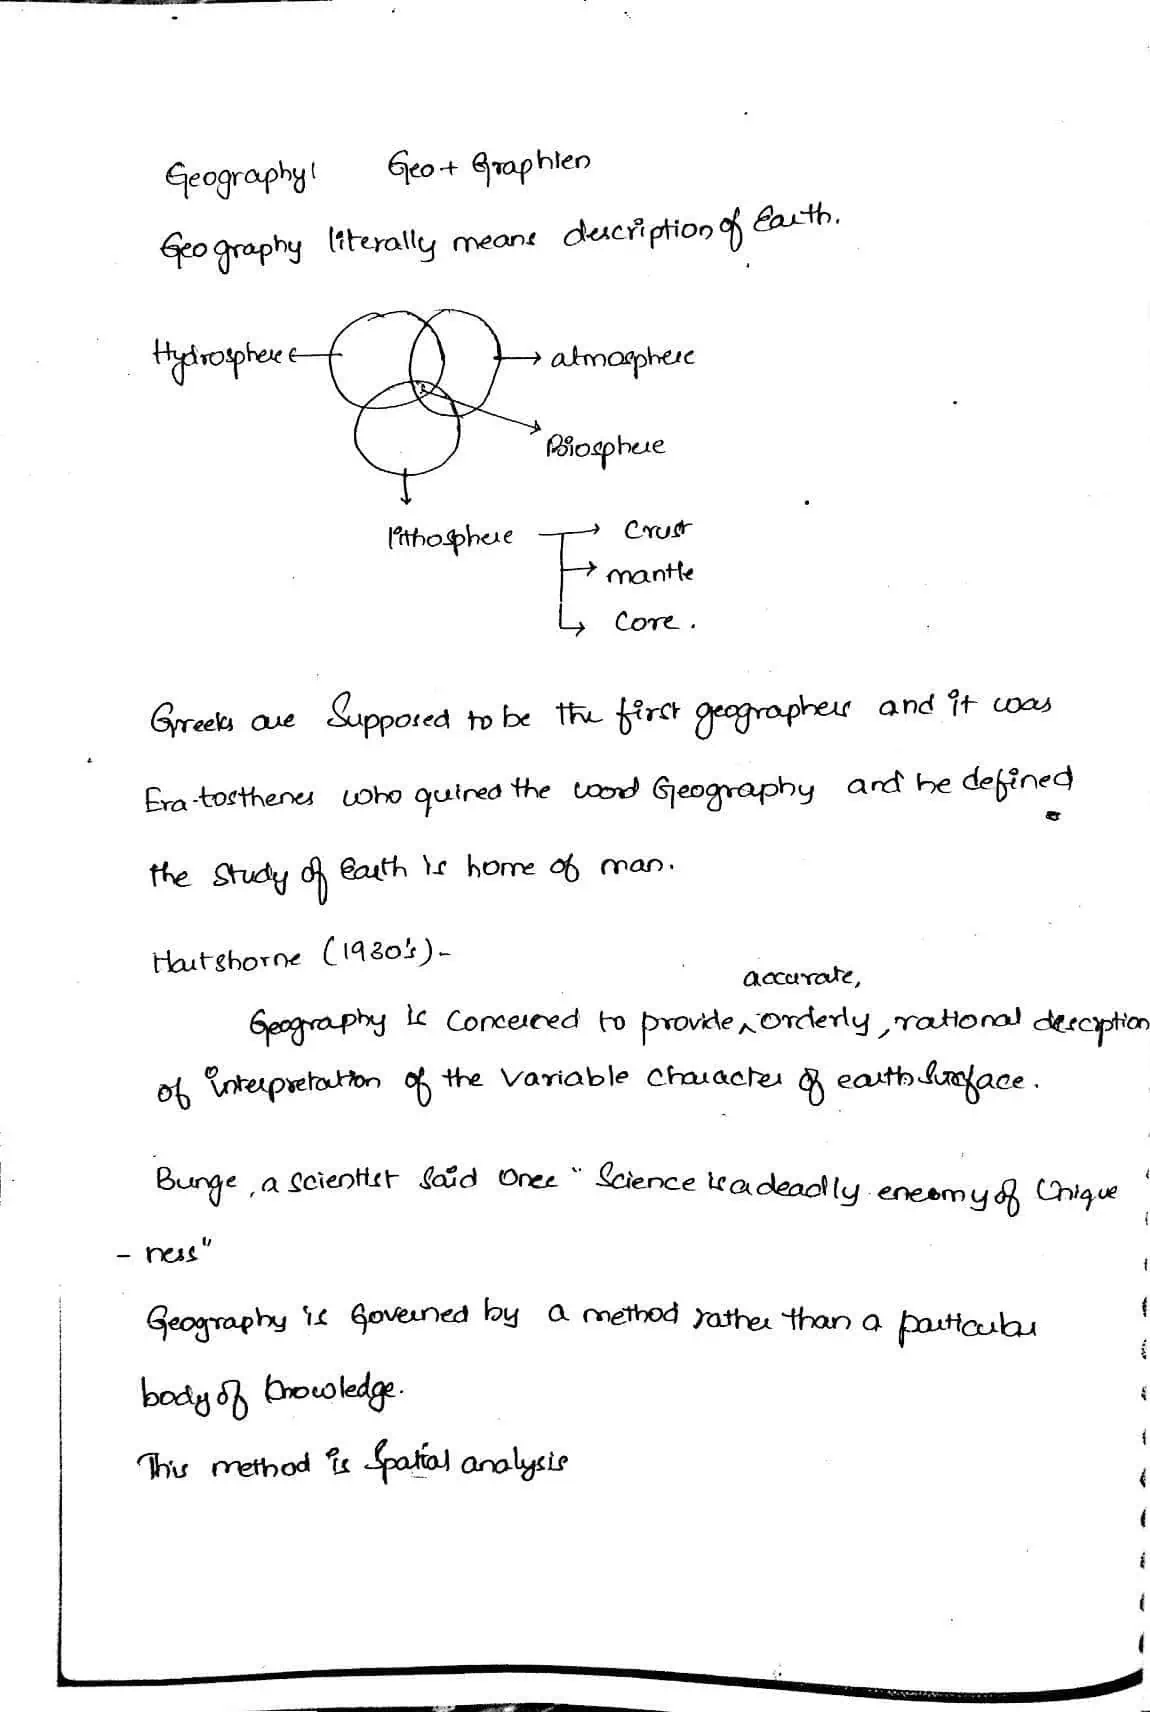 Geography: Geo + Graphien
Geography literally means description of Earth.
Hydrosphere
atmosphere
Biosphere
lithosphere
Crust
mantle
Core.
Greeks are Supposed to be the first geographers and it was
Era-tosthenes who quined the word Geography and he defined
the study of Earth is home of man.
Hartshorne (1930's)-
accurate,
Geography is Concerned to provide ^ orderly, rational desciption
of interpretation of the variable character of earth surface.
Bunge, a scientist said once "Science is a deadly eneomy of Unique
- ness"
Geography is Governed by a method rather than a particular
body of knowledge.
This method is Spatial analysis